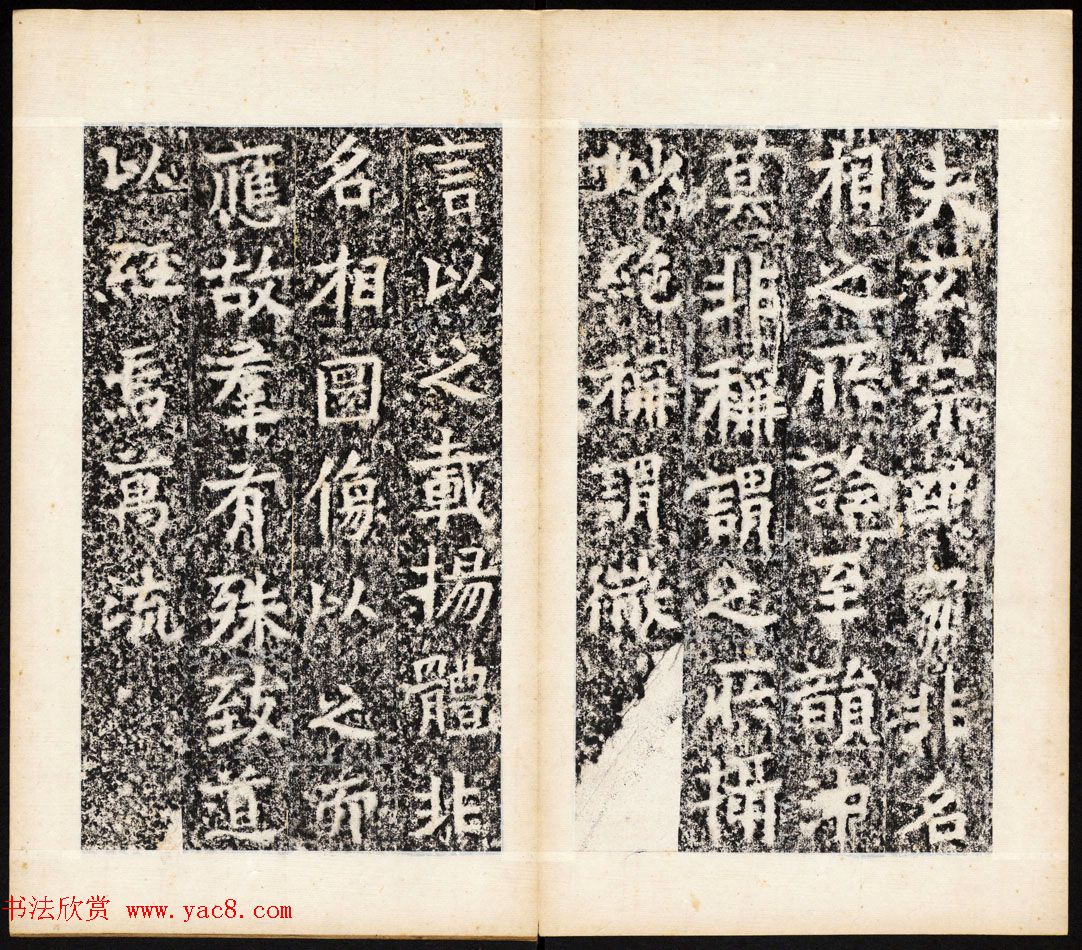 夫玄宗幽寂非名
相之所詮至韻冲
莫非稱謂之所攝
妙絶稱謂微
言以之載揚體非
名相圖像以之而
應故羣有殊致道
以經焉萬流
书法欣赏 www.yac8.com